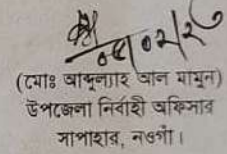 ০৫/০২/২৩
(মোঃ আব্দুল্যাহ আল মামুন)
উপজেলা নির্বাহী অফিসার
সাপাহার, নওগাঁ।